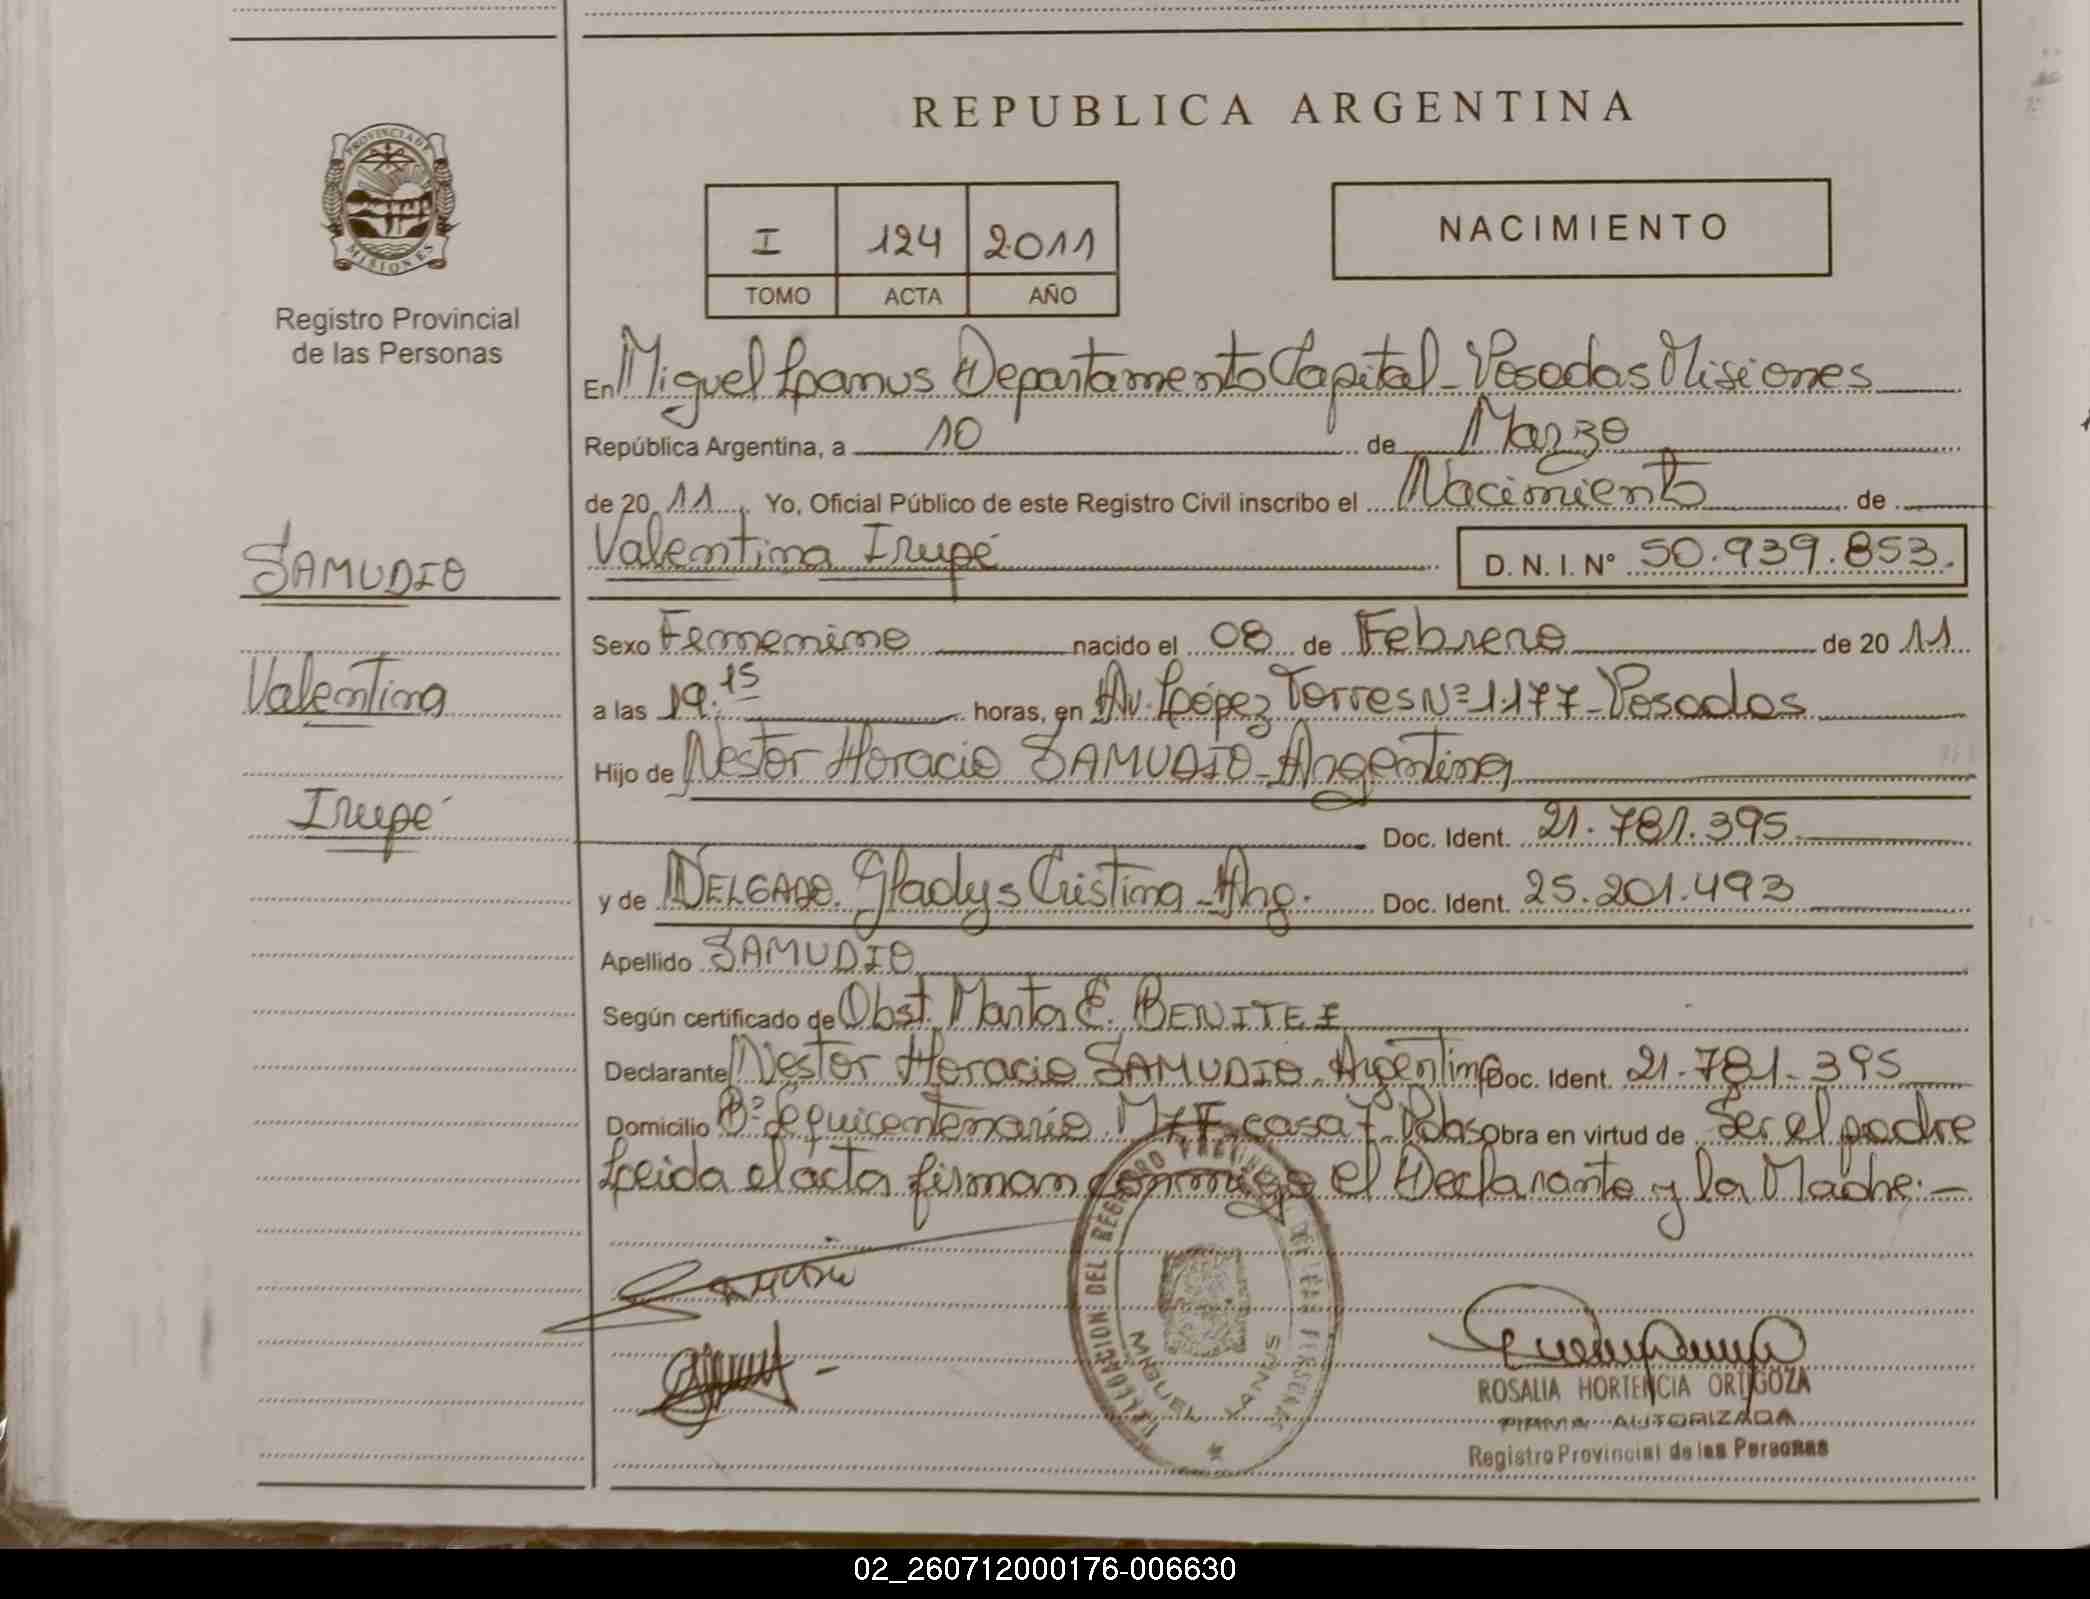 REPUBLICA ARGENTINA
PROVINCIA DE
MISIONES
Registro Provincial
de las Personas
I 124 2011
TOMO ACTA AÑO
NACIMIENTO
En Miguel Lanus Departamento Capital - Posadas Misiones
República Argentina, a 10 de Marzo
de 20 11. Yo, Oficial Público de este Registro Civil inscribo el Nacimiento de
SAMUDIO
Valentina Irupé D. N. I. N° 50.939.853.
Sexo Femenino nacido el 08 de Febrero de 20 11
Valentina
a las 19.15 horas, en Av. López Torres Nº 1177 - Posadas
Hijo de Nestor Horacio SAMUDIO - Argentina
Irupé
Doc. Ident. 21.781.395
y de DELGADO. Gladys Cristina - Arg. Doc. Ident. 25.201.493
Apellido SAMUDIO
Según certificado de Obst. Marta E. BENITEZ
Declarante Nestor Horacio SAMUDIO. Argentino Doc. Ident. 21-781-395
Domicilio Bº Sequicentenario casa 7 - Pdas obra en virtud de Ser el padre
Leida el acta firman conmigo el Declarante y la Madre. -
DELEGACION DEL REGISTRO PROVINCIAL DE LAS PERSONAS
MIGUEL LANUS
ROSALIA HORTENCIA ORTIGOZA
FIRMA AUTORIZADA
Registro Provincial de las Personas
02_260712000176-006630